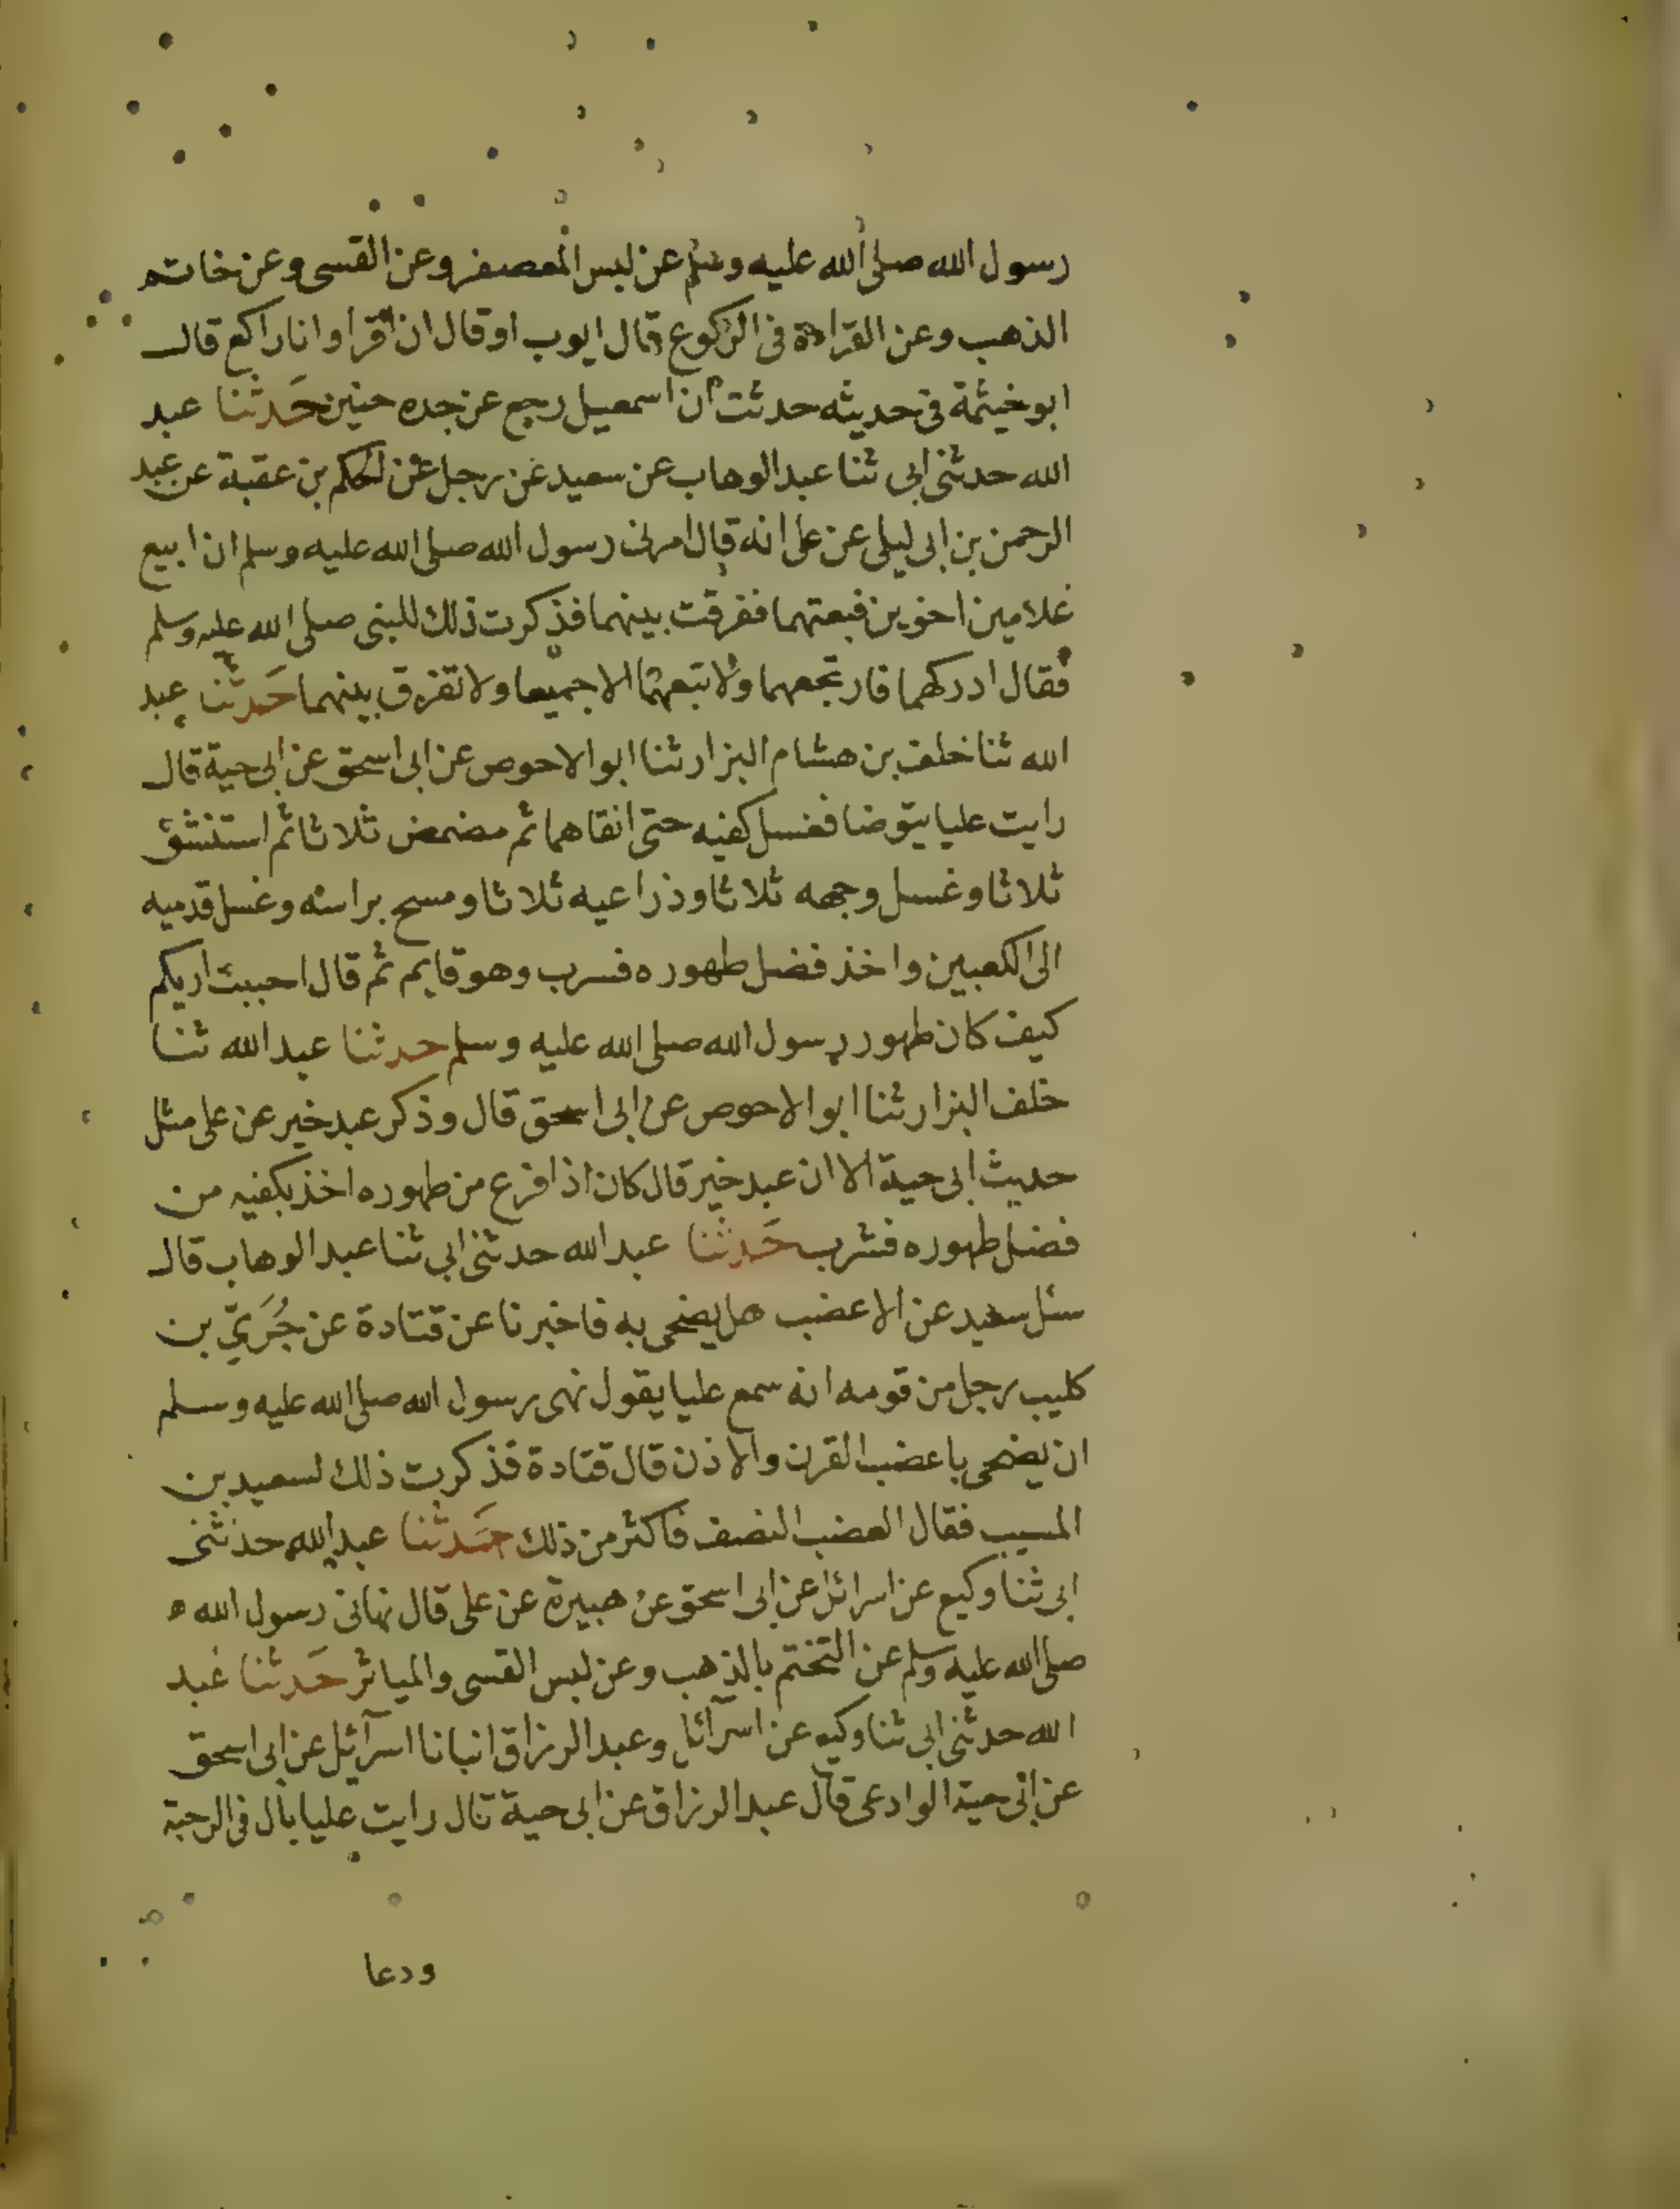 رسول الله صلى الله عليه وسلم عن لبس المعصفر وعن القسى وعن خاتم
الذهب وعن القراءة فى الركوع قال ايوب اوقال ان اقرا وانا راكع قال
ابو خيثمة فى حديثه حدثت ان اسمعيل رجع عن جده حنين حَدثنا عبد
الله حدثنى ابى ثنا عبد الوهاب عن سعيد عن رجل عن الحكم بن عقبة عن عبد
الرحمن بن ابى ليلى عن على انه قال امرنى رسول الله صلى الله عليه وسلم ان ابيع
غلامين اخوين فبعتهما ففرقت بينهما فذكرت ذلك للنبى صلى الله عليه وسلم
فقال ادركهما فارتجعهما ولا تبعهما الا جميعا ولا تفرق بينهما حَدثنا عبد
الله ثنا خلف بن هشام البزار ثنا ابو الاحوص عن ابى اسحق عن ابى حية قال
رايت عليا يتوضا فغسل كفيه حتى انقاهما ثم مضمض ثلاثا ثم استنشق
ثلاثا وغسل وجهه ثلاثا وذراعيه ثلاثا ومسح براسه وغسل قدميه
الى الكعبين واخذ فضل طهوره فسرب وهو قايم ثم قال احببت اريكم
كيف كان طهور رسول الله صلى الله عليه وسلم حدثنا عبد الله ثنا
خلف البزار ثنا ابو الاحوص عن ابى اسحق قال وذكر عبد خير عن على مثل
حديث ابى حية الا ان عبد خير قال كان اذا فرع من طهوره اخذ بكفيه من
فضل طهوره فشرب حَدثنا عبد الله حدثنى ابى ثنا عبد الوهاب قال
سئل سعيد عن الاعضب هل يضحى به فاخبرنا عن قتادة عن جُرَىّ بن
كليب رجل من قومه انه سمع عليا يقول نهى رسول الله صلى الله عليه وسلم
ان يضحى باعضب القرن والاذن قال قتادة فذكرت ذلك لسعيد بن
المسيب فقال العضب النصف فاكثر من ذلك حَدثنا عبد الله حدثنى
ابى ثنا وكيع عن اسرائل عن ابى اسحق عن هبيرة عن على قال نهانى رسول الله
صلى الله عليه وسلم عن التختم بالذهب وعن لبس القسى والمياثر حَدثنا عبد
الله حدثنى ابى ثنا وكيع عن اسرآئل وعبد الرزاق انبانا اسرآئيل عن ابى اسحق
عن ابى حية الوادعى قال عبد الرزاق عن ابى حية قال رايت عليا بال فى الرحبة
ودعا